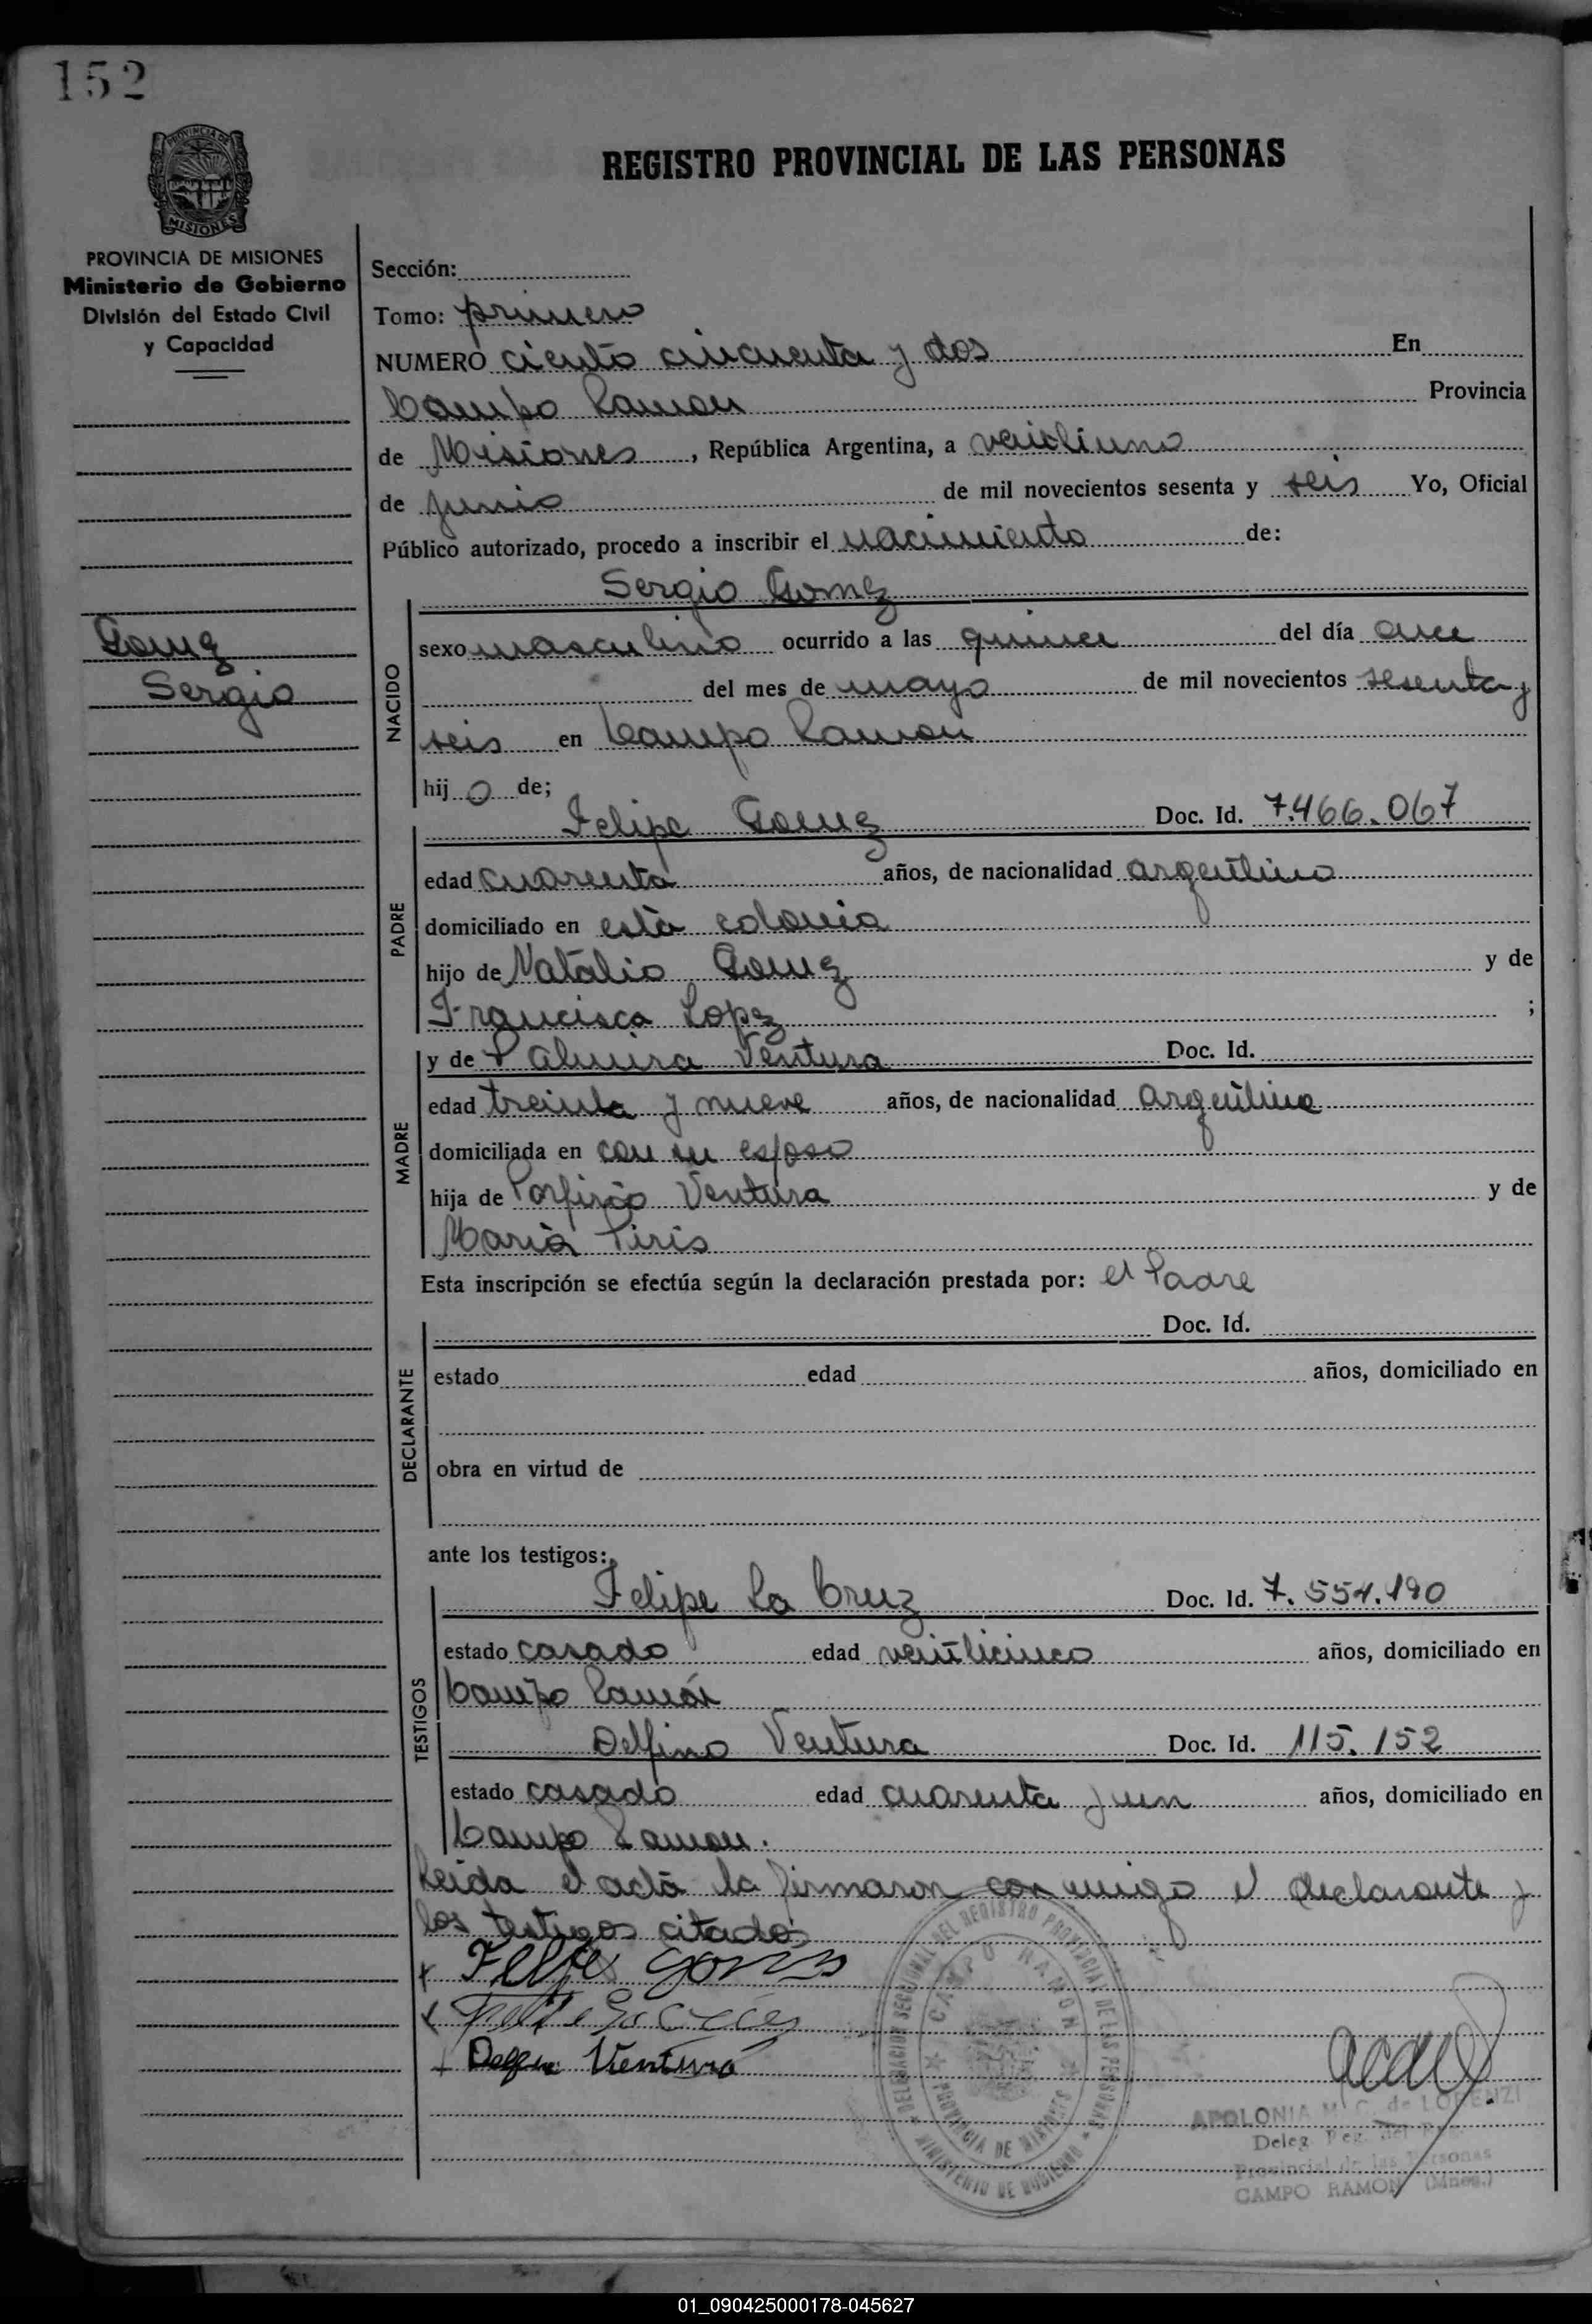 152
PROVINCIA DE
MISIONES
REGISTRO PROVINCIAL DE LAS PERSONAS
PROVINCIA DE MISIONES
Ministerio de Gobierno
División del Estado Civil
y Capacidad
Gomez
Sergio
Sección:
Tomo: primero
NUMERO ciento cincuenta y dos En
Campo Ramon Provincia
de Misiones, República Argentina, a veintiuno
de junio de mil novecientos sesenta y seis Yo, Oficial
Público autorizado, procedo a inscribir el nacimiento de:
Sergio Gomez
NACIDO
sexo masculino ocurrido a las quince del día once
del mes de mayo de mil novecientos sesenta y
seis en Campo Ramon
hij o de;
PADRE
Felipe Gomez Doc. Id. 7.466.067
edad cuarenta años, de nacionalidad argentino
domiciliado en esta colonia
hijo de Natalio Gomez y de
Francisca Lopez ;
MADRE
y de Palmira Ventura Doc. Id.
edad treinta y nueve años, de nacionalidad argentina
domiciliada en con su esposo
hija de Porfirio Ventura y de
Maria Piris
Esta inscripción se efectúa según la declaración prestada por: el Padre
DECLARANTE
Doc. Id.
estado edad años, domiciliado en
obra en virtud de
ante los testigos:
TESTIGOS
Felipe La Cruz Doc. Id. 7.554.190
estado casado edad veinticinco años, domiciliado en
Campo Ramón
Delfino Ventura Doc. Id. 115.152
estado casado edad cuarenta y un años, domiciliado en
Campo Ramon.
Leida el acta la firmaron conmigo el declarante y
los testigos citados
Ventura
DELEGACION SECCIONAL DEL REGISTRO PROVINCIAL DE LAS PERSONAS
CAMPO RAMON
PROVINCIA DE MISIONES
MINISTERIO DE GOBIERNO
APOLONIA M. C. de LORENZI
Deleg. Reg. del
Provincial de las Personas
CAMPO RAMON (Mnes.)
01_090425000178-045627